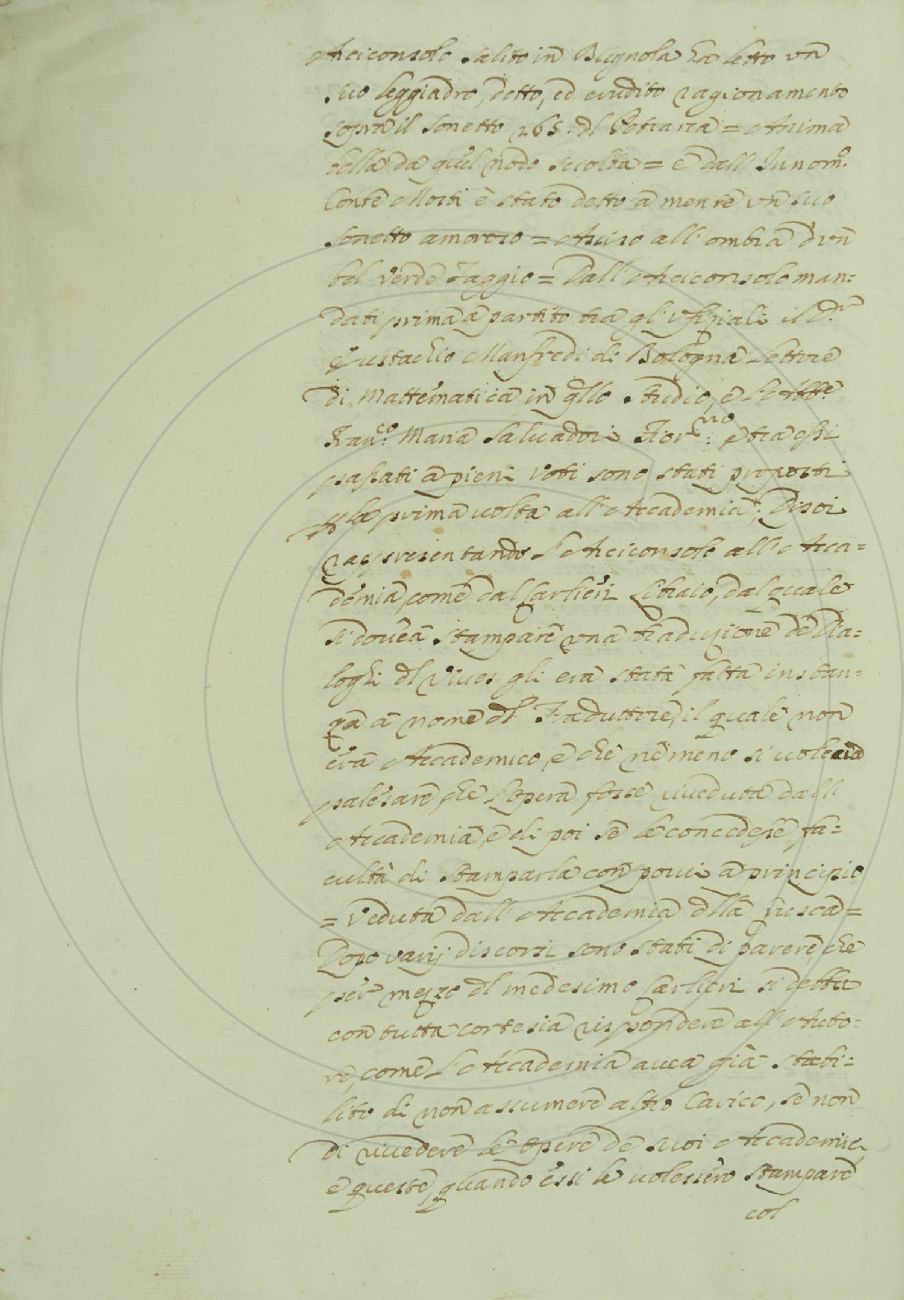 Arciconsolo salito in Bugnola ha letto un
suo leggiadro, dotto, ed erudito ragionamento
sopra il sonetto 265. del Petrarca = Anima
bella da quel nodo sciolta = e dall' Innom.
Conte Morti è stato detto a mente un suo
sonetto amoroso = Assiso all' ombra d'un
bel verde faggio = Dall' Arciconsolo man=
dati prima a partito tra gl' ufiziali il D.r
Eustachio Manfredi di Bologna Lettore
di Mattematica in qllo studio, e
Fran.co Maria Salvadori Fior.no: e tra essi
passati a pieni voti sono stati proposti
la prima volta all' Accademia. Di poi
rappresentando l'Arciconsolo all' Acca=
demia, come dal Carlieri Libraio, dal quale
si dovea stampare una traduzione de Dia=
loghi dl Vives gli era stata fatta instan=
za a nome dl Traduttore, il quale non
era Accademico, e che nemmeno si voleva
palesare che l'Opera fosse riveduta dall'
Accademia, e di poi se le concedesse fa=
cultà di stamparla con porvi a principio
= Veduta dall' Accademia dlla Crusca =
Dopo varij discorsi sono stati di parere che
per mezzo dl medesimo Carlieri si debba
con tutta cortesia rispondere all' Auto=
re, come l'Accademia avea già stabi=
lito di non assumere altro carico, se non
di rivedere le opere de suoi Accademici,
e queste, quando essi le volessero stampare
col